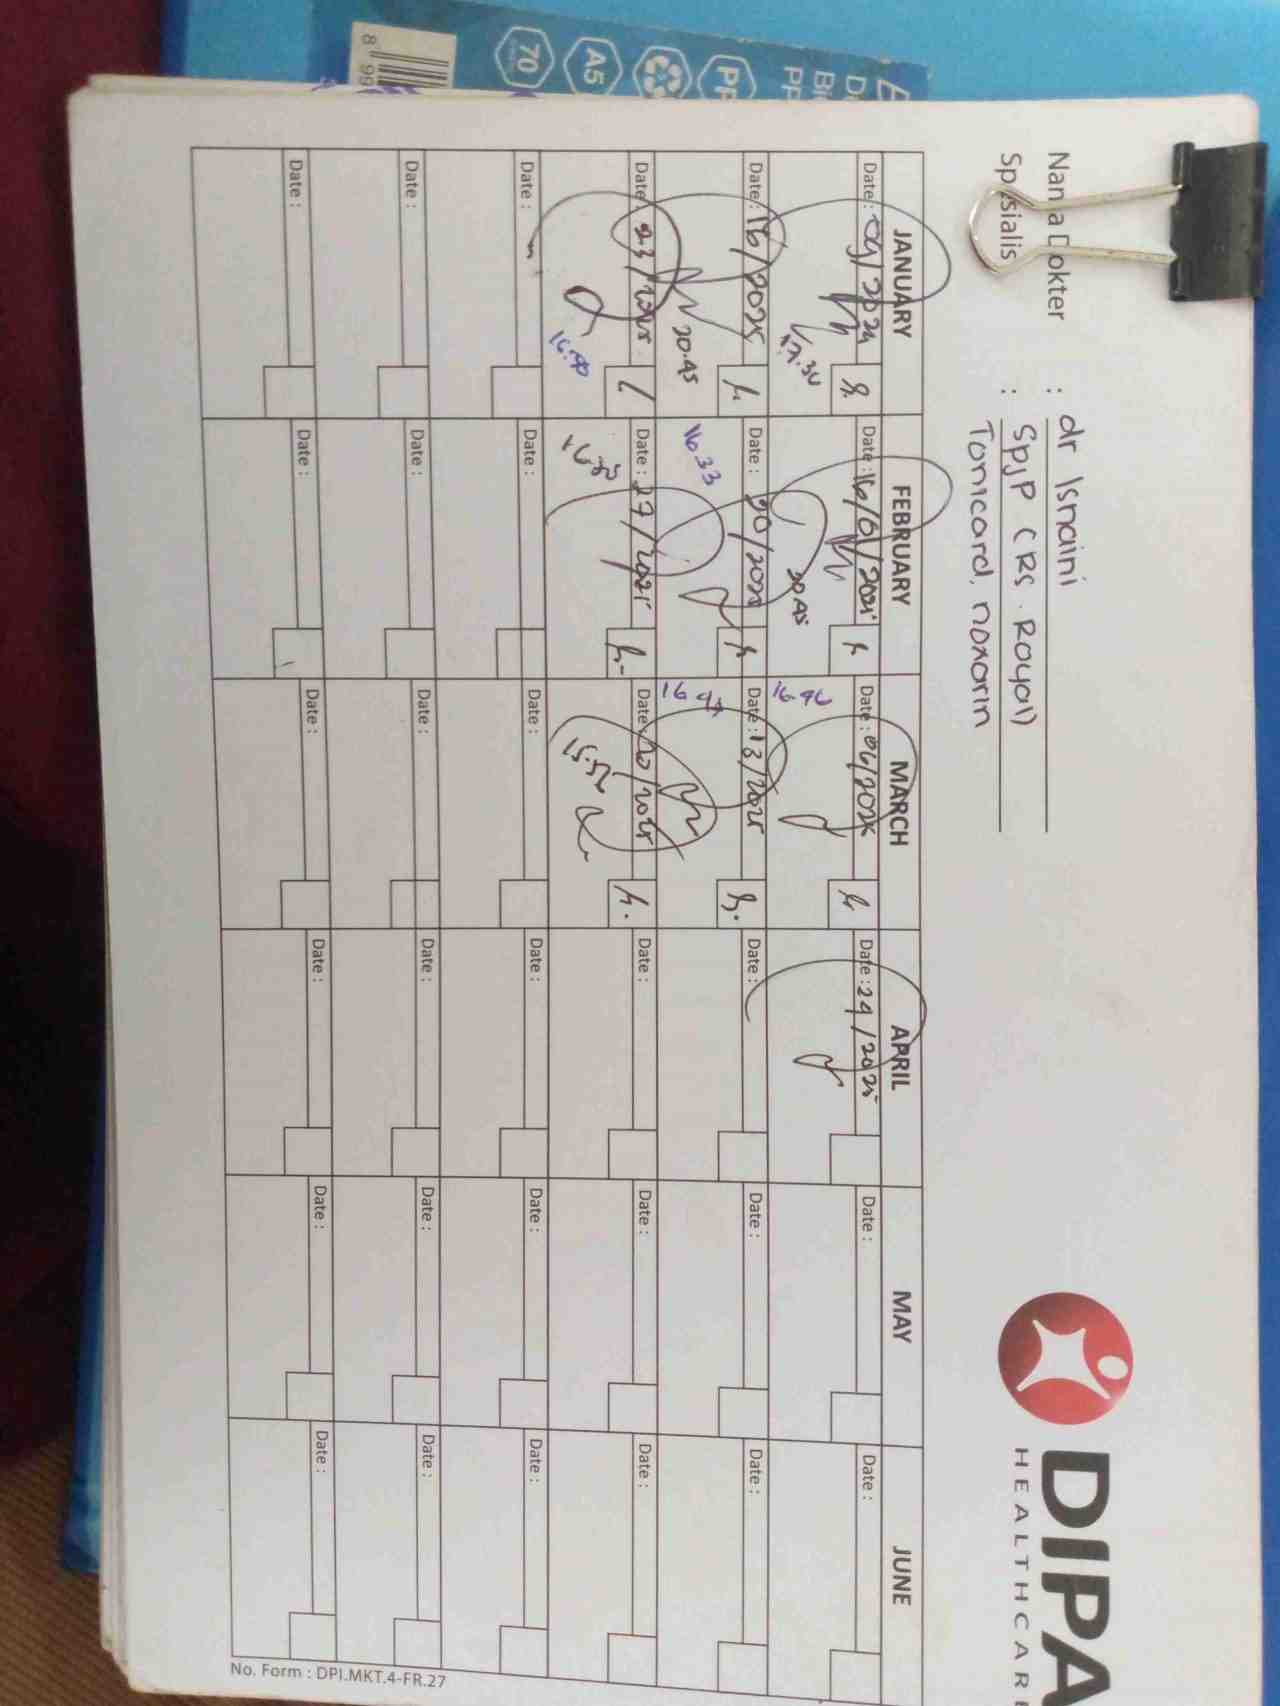 DIPA
HEALTHCARE
Nama Dokter : dr Isnaini
Spesialis : SpJP (RS. Royal)
Tomicard, noxarin
JANUARY FEBRUARY MARCH APRIL MAY JUNE
Date : 09/2024 Date : 16/01/2025 Date : 06/2025 Date : 24/2025 Date : Date :
17.30 20.45 16.46
Date : 16/2025 Date : 20/2025 Date : 13/2025 Date : Date : Date :
20.45 16.33 16.47
Date : 23/2025 Date : 27/2025 Date : 20/2025 Date : Date : Date :
16.50 15.52
Date : Date : Date : Date : Date : Date :
Date : Date : Date : Date : Date : Date :
Date : Date : Date : Date : Date : Date :
No. Form : DPI.MKT.4-FR.27
70
A5
PP
8 99